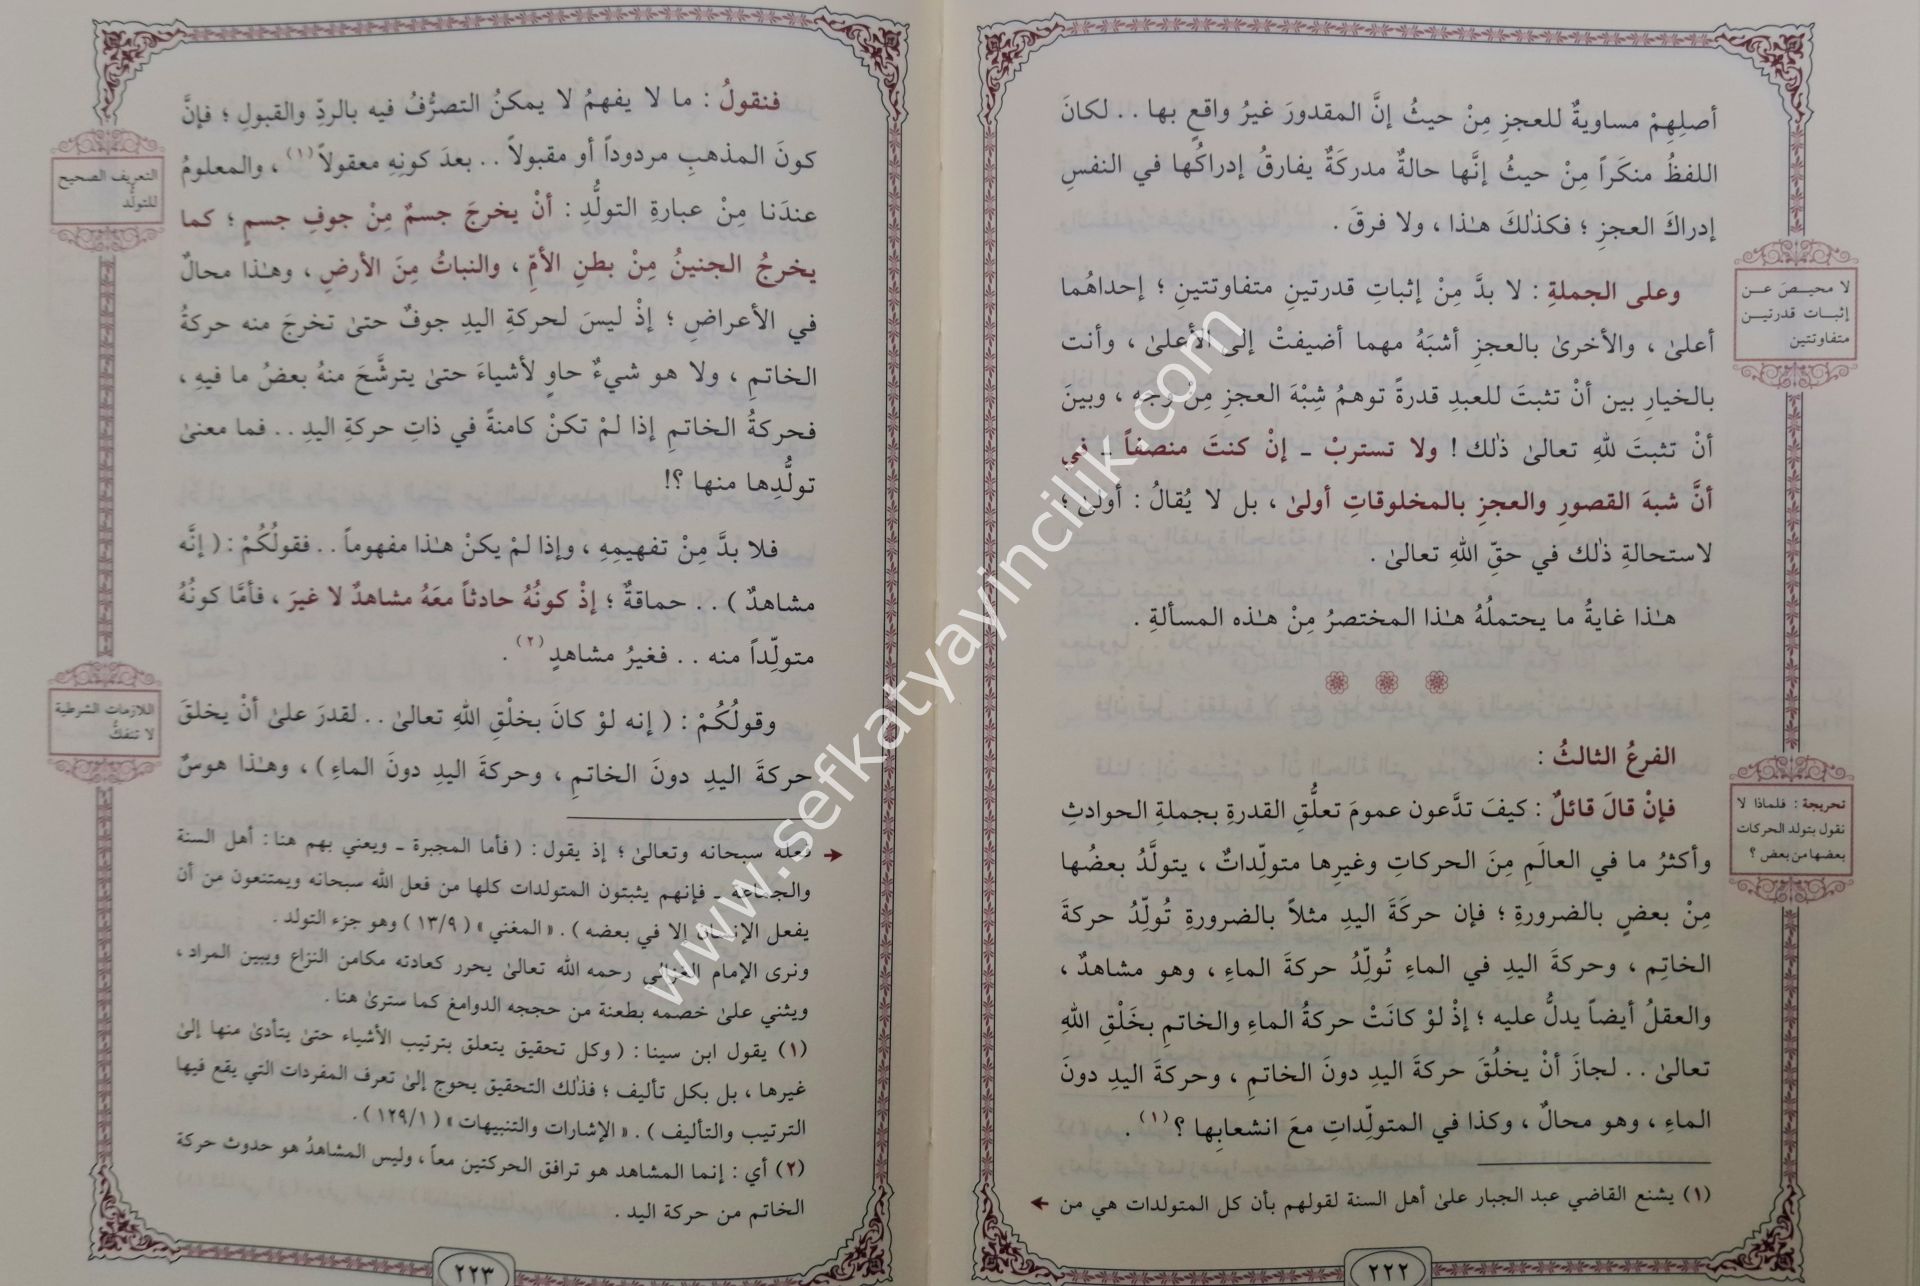 أصلِهِمْ مساويةٌ للعجزِ مِنْ حيثُ إنَّ المقدورَ غيرُ واقعٍ بها . . لكانَ
اللفظُ منكَراً مِنْ حيثُ إنَّها حالةٌ مدركَةٌ يفارقُ إدراكُها في النفسِ
إدراكَ العجزِ ؛ فكذٰلكَ هـٰذا ، ولا فرقَ .
وعلى الجملةِ : لا بدَّ مِنْ إثباتِ قدرتينِ متفاوتتينِ ؛ إحداهُما
أعلىٰ ، والأخرىٰ بالعجزِ أشبَهُ مهما أضيفتْ إلى الأعلىٰ ، وأنت
بالخيارِ بين أنْ تثبتَ للعبدِ قدرةً توهمُ شِبْهَ العجزِ مِنْ وجهٍ ، وبينَ
أنْ تثبتَ للهِ تعالىٰ ذٰلك ! ولا تستربْ ـ إنْ كنتَ منصفاً ـ في
أنَّ شبهَ القصورِ والعجزِ بالمخلوقاتِ أولىٰ ، بل لا يُقالُ : أولىٰ ؛
لاستحالةِ ذٰلك في حقِّ اللهِ تعالىٰ .
هـٰذا غايةُ ما يحتملُهُ هـٰذا المختصرُ مِنْ هـٰذه المسألةِ .
لا محيـصَ عـن
إثبـات قدرتيـن
متفاوتتين
الفرعُ الثالثُ :
فإنْ قالَ قائلٌ : كيفَ تدَّعون عمومَ تعلُّقِ القدرةِ بجملةِ الحوادثِ
وأكثرُ ما في العالَمِ مِنَ الحركاتِ وغيرِها متولِّداتٌ ، يتولَّدُ بعضُها
مِنْ بعضٍ بالضرورةِ ؛ فإن حركَةَ اليدِ مثلاً بالضرورةِ تُولِّدُ حركةَ
الخاتِم ، وحركةَ اليدِ في الماءِ تُولِّدُ حركةَ الماءِ ، وهو مشاهدٌ ،
والعقلُ أيضاً يدلُّ عليه ؛ إذْ لوْ كانَتْ حركةُ الماءِ والخاتمِ بخَلْقِ اللهِ
تعالىٰ . . لجازَ أنْ يخلُقَ حركةَ اليدِ دونَ الخاتمِ ، وحركةَ اليدِ دونَ
الماءِ ، وهو محالٌ ، وكذا في المتولِّداتِ معَ انشعابِها ؟ (١) .
تحريجة : فلماذا لا
نقول بتولد الحركات
بعضها من بعض ؟
(١) يشنع القاضي عبد الجبار علىٰ أهل السنة لقولهم بأن كل المتولدات هي من
٢٢٢
فنقولُ : ما لا يفهمُ لا يمكنُ التصرُّفُ فيه بالردِّ والقبولِ ؛ فإنَّ
كونَ المذهبِ مردوداً أو مقبولاً . . بعدَ كونِهِ معقولاً (١) ، والمعلومُ
عندَنا مِنْ عبارةِ التولُّدِ : أنْ يخرجَ جسمٌ مِنْ جوفِ جسمٍ ؛ كما
يخرجُ الجنينُ مِنْ بطنِ الأمِّ ، والنباتُ مِنَ الأرضِ ، وهـٰذا محالٌ
في الأعراضِ ؛ إذْ ليسَ لحركةِ اليدِ جوفٌ حتىٰ تخرجَ منه حركةُ
الخاتمِ ، ولا هو شيءٌ حاوٍ لأشياءَ حتىٰ يترشَّحَ منهُ بعضُ ما فيهِ ،
فحركةُ الخاتمِ إذا لمْ تكنْ كامنةً في ذاتِ حركةِ اليدِ . . فما معنىٰ
تولُّدِها منها ؟!
التعريف الصحيح
للتولُّد
فلا بدَّ مِنْ تفهيمِهِ ، وإذا لمْ يكنْ هـٰذا مفهوماً . . فقولُكُمْ : ( إنَّه
مشاهدٌ ) . . حماقةٌ ؛ إذْ كونُهُ حادثاً معَهُ مشاهدٌ لا غيرَ ، فأمَّا كونُهُ
متولِّداً منه . . فغيرُ مشاهدٍ (٢) .
وقولُكُمْ : ( إنه لوْ كانَ بخلْقِ اللهِ تعالىٰ . . لقدرَ علىٰ أنْ يخلقَ
حركةَ اليدِ دونَ الخاتمِ ، وحركةَ اليدِ دونَ الماءِ ) ، وهـٰذا هوسٌ
اللازمات الشرطية
لا تنفكُّ
فعله سبحانه وتعالىٰ ؛ إذ يقول : ( فأما المجبرة ـ ويعني بهم هنا : أهل السنة
والجماعة ـ فإنهم يثبتون المتولدات كلها من فعل الله سبحانه ويمتنعون من أن
يفعل الإنسان إلا في بعضه ) . « المغني » ( ١٣/٩ ) وهو جزء التولد .
ونرى الإمام الغزالي رحمه الله تعالىٰ يحرر كعادته مكامن النزاع ويبين المراد ،
ويثني علىٰ خصمه بطعنة من حججه الدوامغ كما سترىٰ هنا .
(١) يقول ابن سينا : ( وكل تحقيق يتعلق بترتيب الأشياء حتىٰ يتأدىٰ منها إلىٰ
غيرها ، بل بكل تأليف ؛ فذٰلك التحقيق يحوج إلىٰ تعرف المفردات التي يقع فيها
الترتيب والتأليف ) . « الإشارات والتنبيهات » ( ١٢٩/١ ) .
(٢) أي : إنما المشاهد هو ترافق الحركتين معاً ، وليس المشاهدُ هو حدوث حركة
الخاتم من حركة اليد .
٢٢٣
www.sefkatyayincilik.com